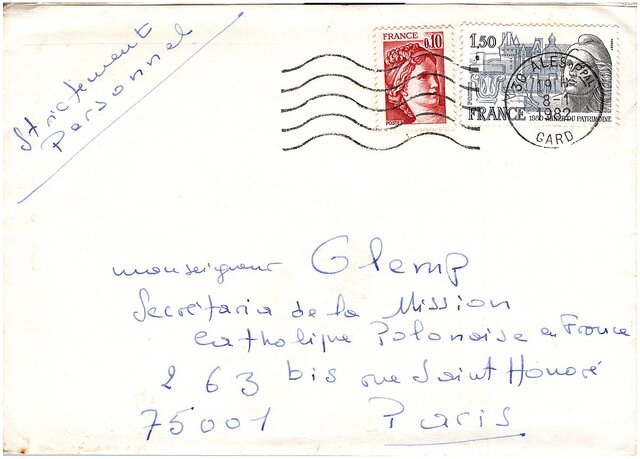 Strictement
Personnel
FRANCE
0,10
1,50
FRANCE
1980 ANNÉE DU PATRIMOINE
30 ALES PPAL
19H
8-1
1982
GARD
monseigneur Glemp
Secretaria de la Mission
Catholique Polonaise en France
263 bis rue Saint Honoré
75001 Paris